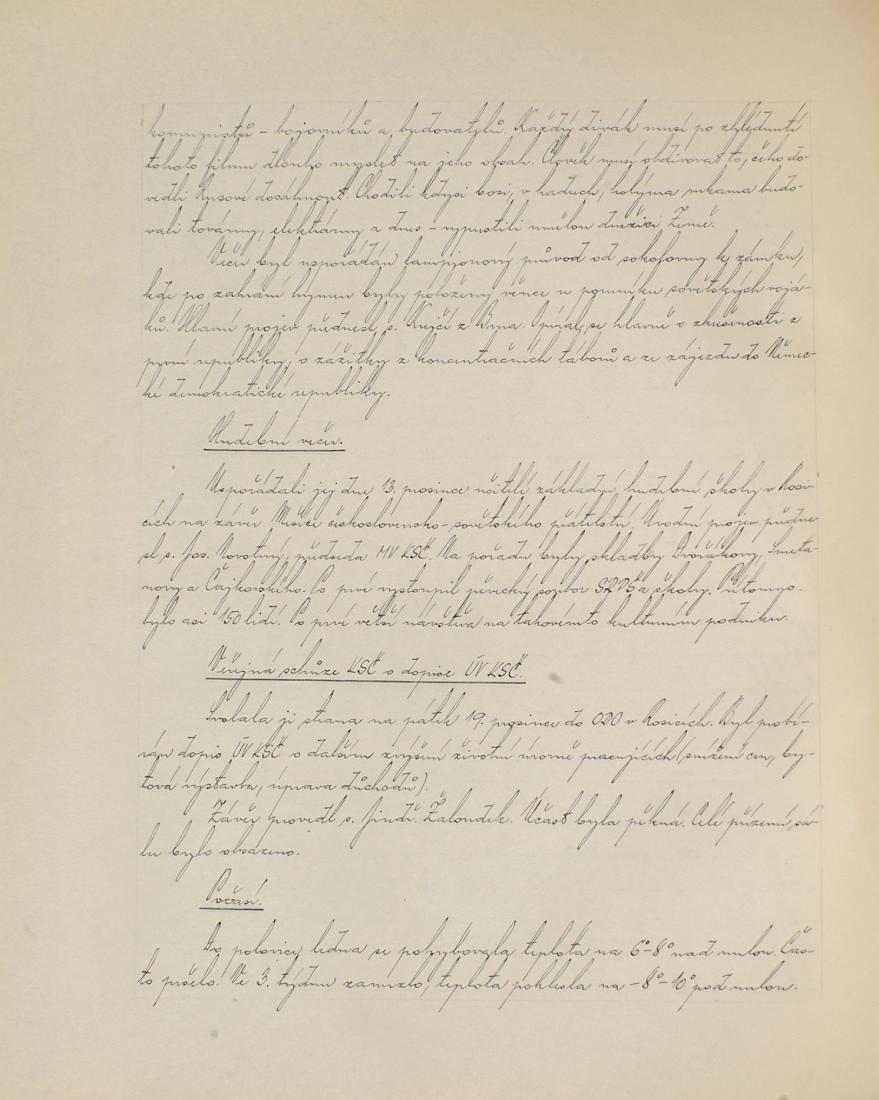 komunistů – bojovníků a budovatelů. Každý divák musí po zhlédnutí
tohoto filmu dlouho myslet na jeho obsah. Člověk musí obdivovat to, čeho do-
vedli Rusové dosáhnout. Chodili kdysi bosi, v hadrech, holýma rukama budo-
vali továrny, elektrárny a dnes – vypustili umělou družici Země.
Večer byl uspořádán lampionový průvod od sokolovny k zámku,
kde po zahraní hymen byly položeny věnce u pomníku sovětských vojá-
ků. Hlavní projev přednesl s. Krejčí z Brna. Opíral se hlavně o zkušenosti z
první republiky, o zážitky z koncentračních táborů a ze zájezdu do Němec-
ké demokratické republiky.
Hudební večer.
Uspořádali jej dne 13. prosince učitelé základní hudební školy v Rosi-
cích na závěr Měsíce československo-sovětského přátelství. Úvodní projev předne-
sl s. Jos. Novotný, předseda MV KSČ. Na pořadu byly skladby Dvořákovy, Smeta-
novy a Čajkovského. Po prvé vystoupil pěvecký sozbor SRPŠ a školy. Přítomno
bylo asi 150 lidí. Po prvé větší návštěva na takovémto kulturním podniku.
Veřejná schůze KSČ o dopise ÚV KSČ.
Svolala ji strana na pátek 19. prosince do OSO v Rosicích. Byl probí-
rán dopis ÚV KSČ o dalším zvýšení životní úrovně pracujících (snížení cen, by-
tová výstavba, úprava důchodů).
Závěr provedl s. Jindř. Žaloudek. Účast byla pěkná. Celé přízemí sá-
lu bylo obsazeno.
Počasí.
Do polovice ledna se pohybovala teplota na 6°–8° nad nulou. Čas-
to pršelo. Ve 3. týdnu zamrzlo, teplota poklesla na –8°–10° pod nulou.